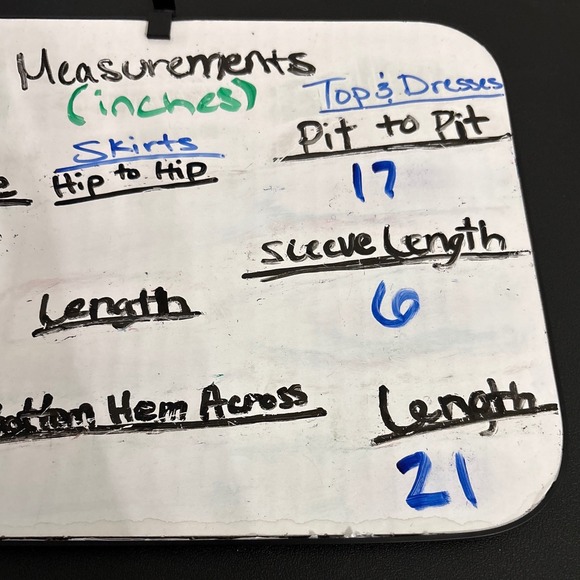 Measurements
(inches)
Top & Dresses
Skirts
Pit to Pit
Hip to Hip
17
Sleeve Length
Length
6
Hem Across
Length
21